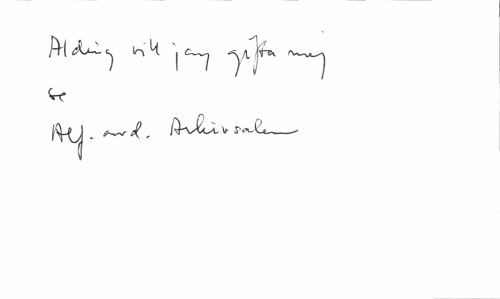 Aldrig vill jag gifta mej
se
Alf. avd. Arkivsalen